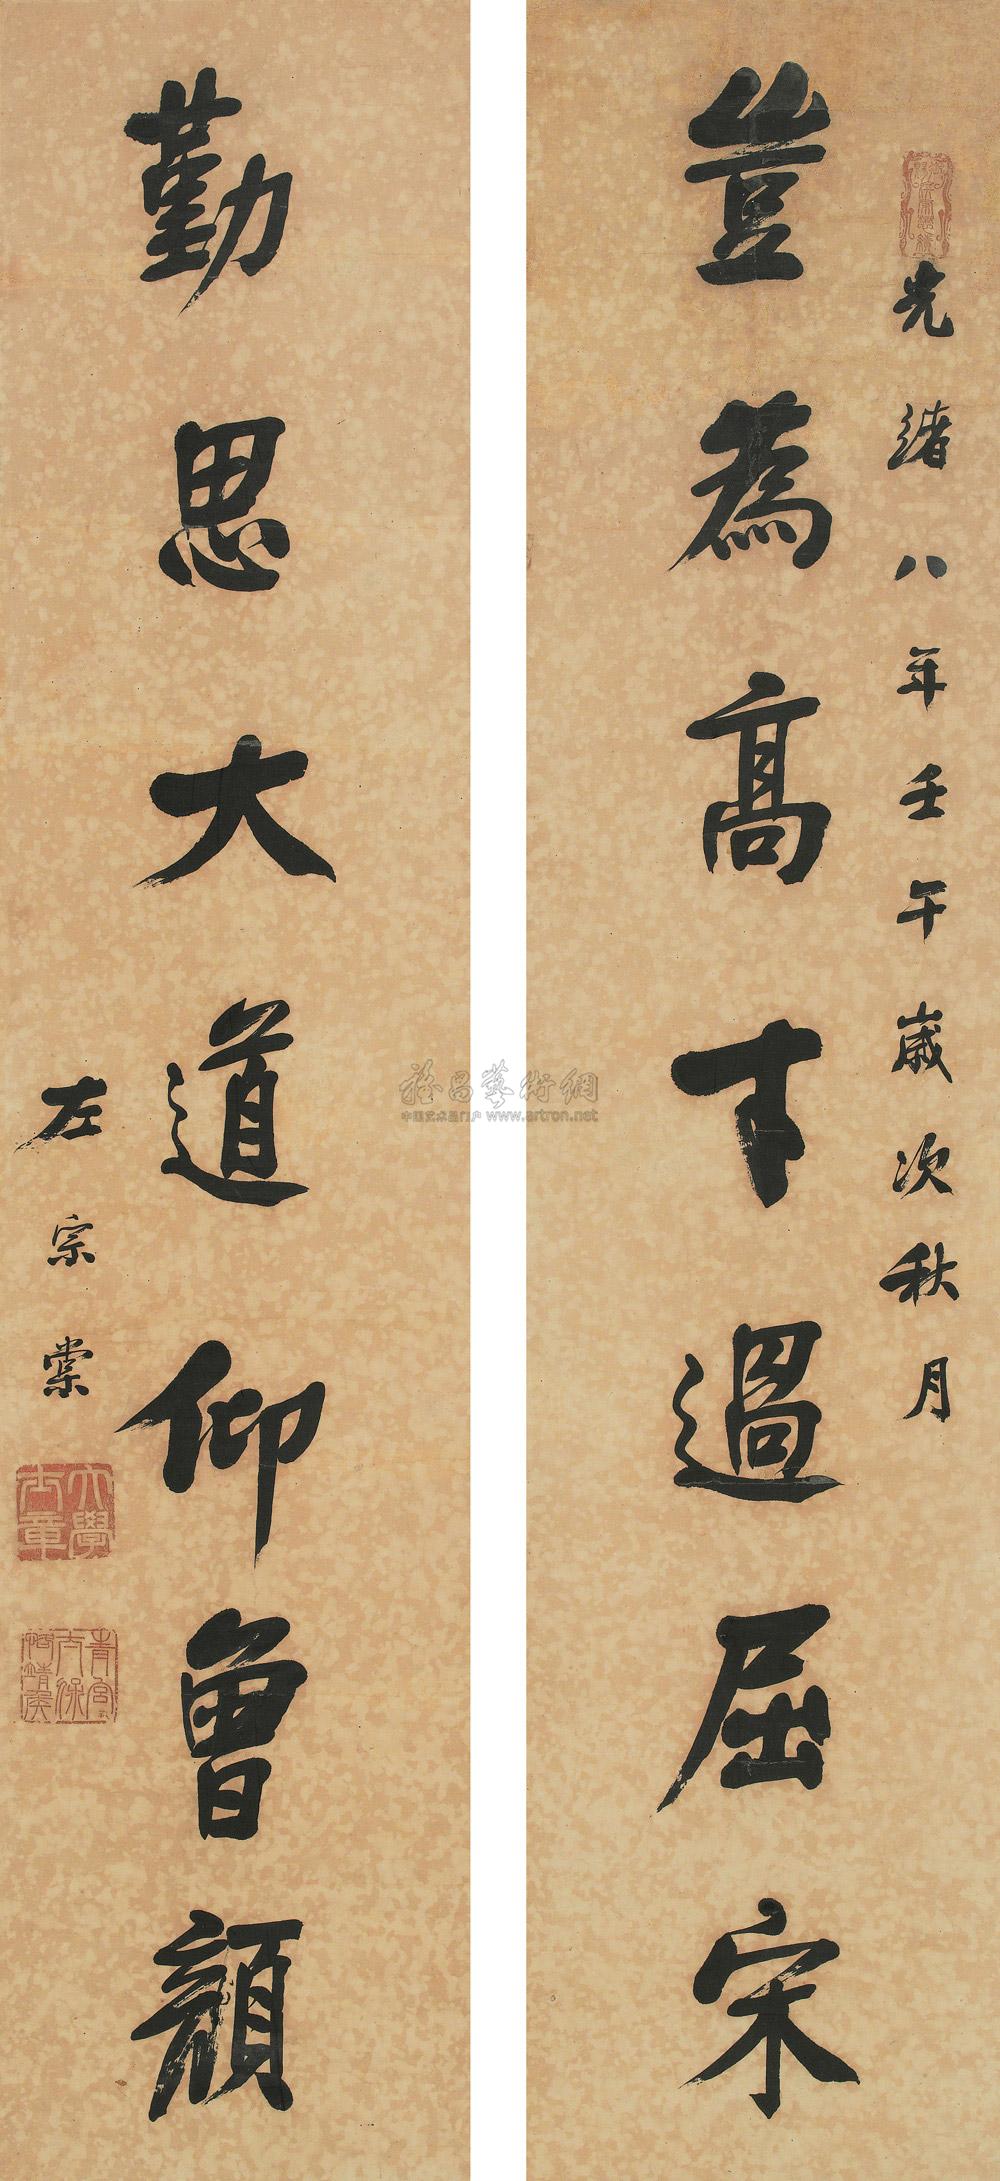 光緒八年壬午歲次秋月
豈為高才過屈宋
勤思大道仰曾顏
左宗棠
大學士章
青宮太保恪靖侯
雅昌藝術網
中国艺术品门户 www.artron.net